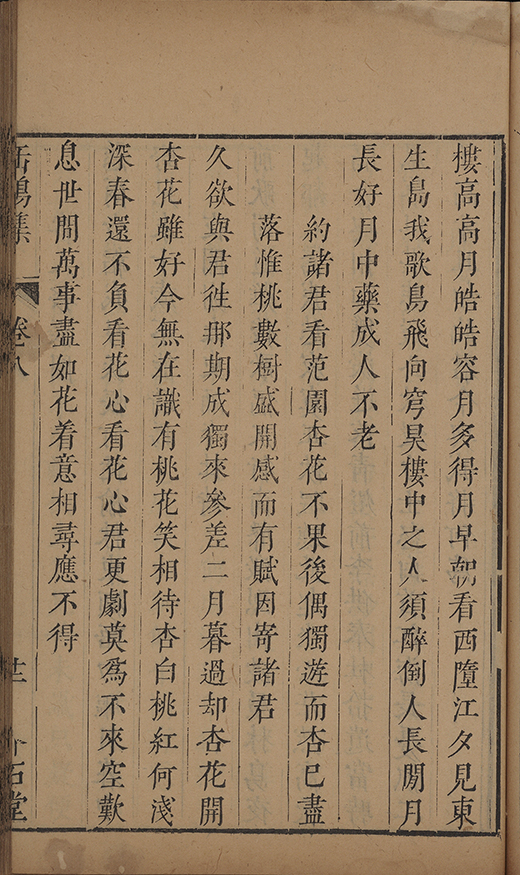 樓高高月皓皓容月多得月早朝看西墮江夕見東
生島我歌島飛向穹昊樓中之人須醉倒人長閒月
長好月中藥成人不老
約諸君看范園杏花不果後偶獨遊而杏已盡
落惟桃數樹盛開感而有賦因寄諸君
久欲與君徃那期成獨來參差二月暮過却杏花開
杏花雖好今無在識有桃花笑相待杏白桃紅何淺
深春還不負看花心看花心君更劇莫爲不來空歎
息世間萬事盡如花着意相尋應不得
集 卷八 廿一 石堂